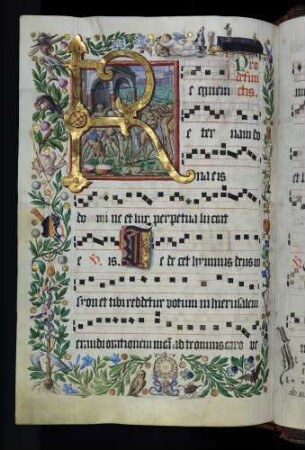 Pro
defun
ctis.
R
e quiem
e ter nam do
na e is
do mi ne et lux perpetua luceat
e is. Te decet hymnus deus in
syon et tibi reddetur votum in hierusalem
exaudi orationem meã ad te omnis caro ve